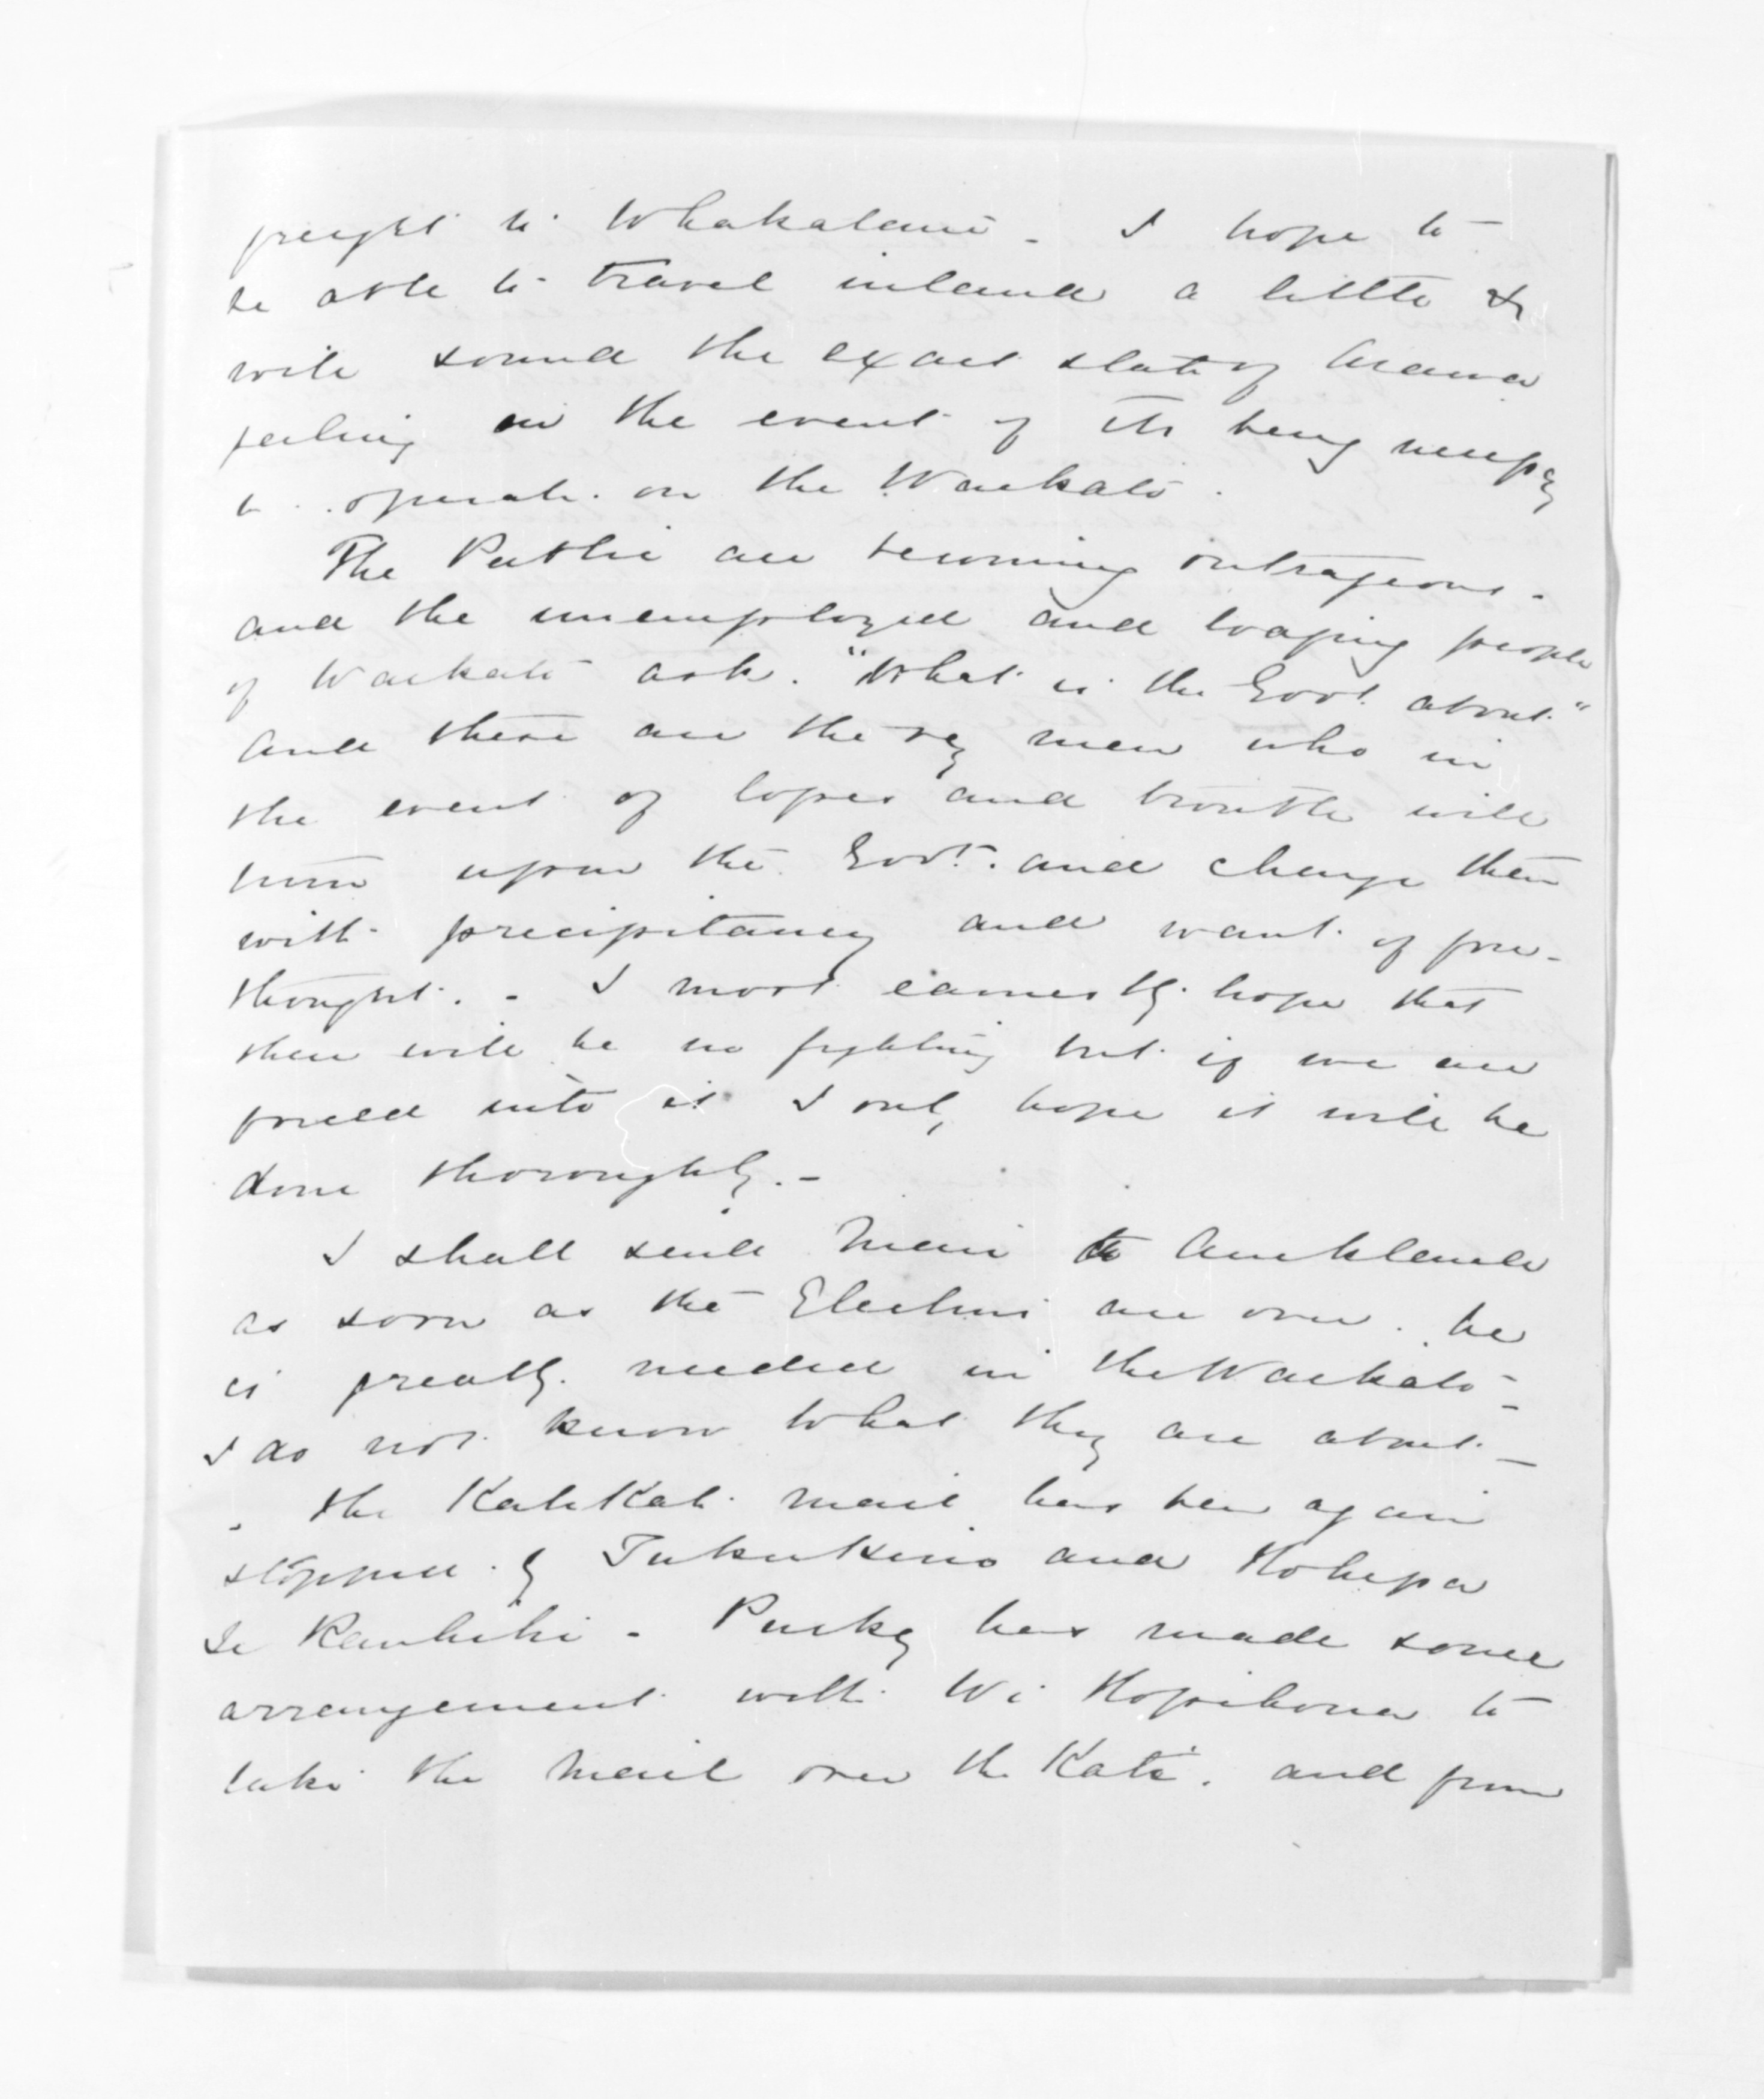 freight to Whakatane - I hope to
be able to travel inland a little &
will sound the exact state of Arawa
feeling in the event of its being necessy
to operate on the Waikato.
The Public are becoming outrageous -
and the unemployed and loafing people
of Waikato ask. "What is the Govt. about"
And these are the very men who in
the event of losses and trouble will
turn upon the Govt. and charge them
with precipitancy and want of fore-
thought. - I most earnestly hope that
there will be no fighting but if we are
forced into it I only hope it will be
done thoroughly. -
I shall send Mair to Auckland
as soon as the Elections are over. he
is greatly needed in the Waikato -
I do not know what they are about -
The KatiKati mail has been again
stopped by Tukukino and Hohepa
te Rauhihi - Puckey has made some
arrangement with Wi Hopihona to
take the Mail over the Kati. and from